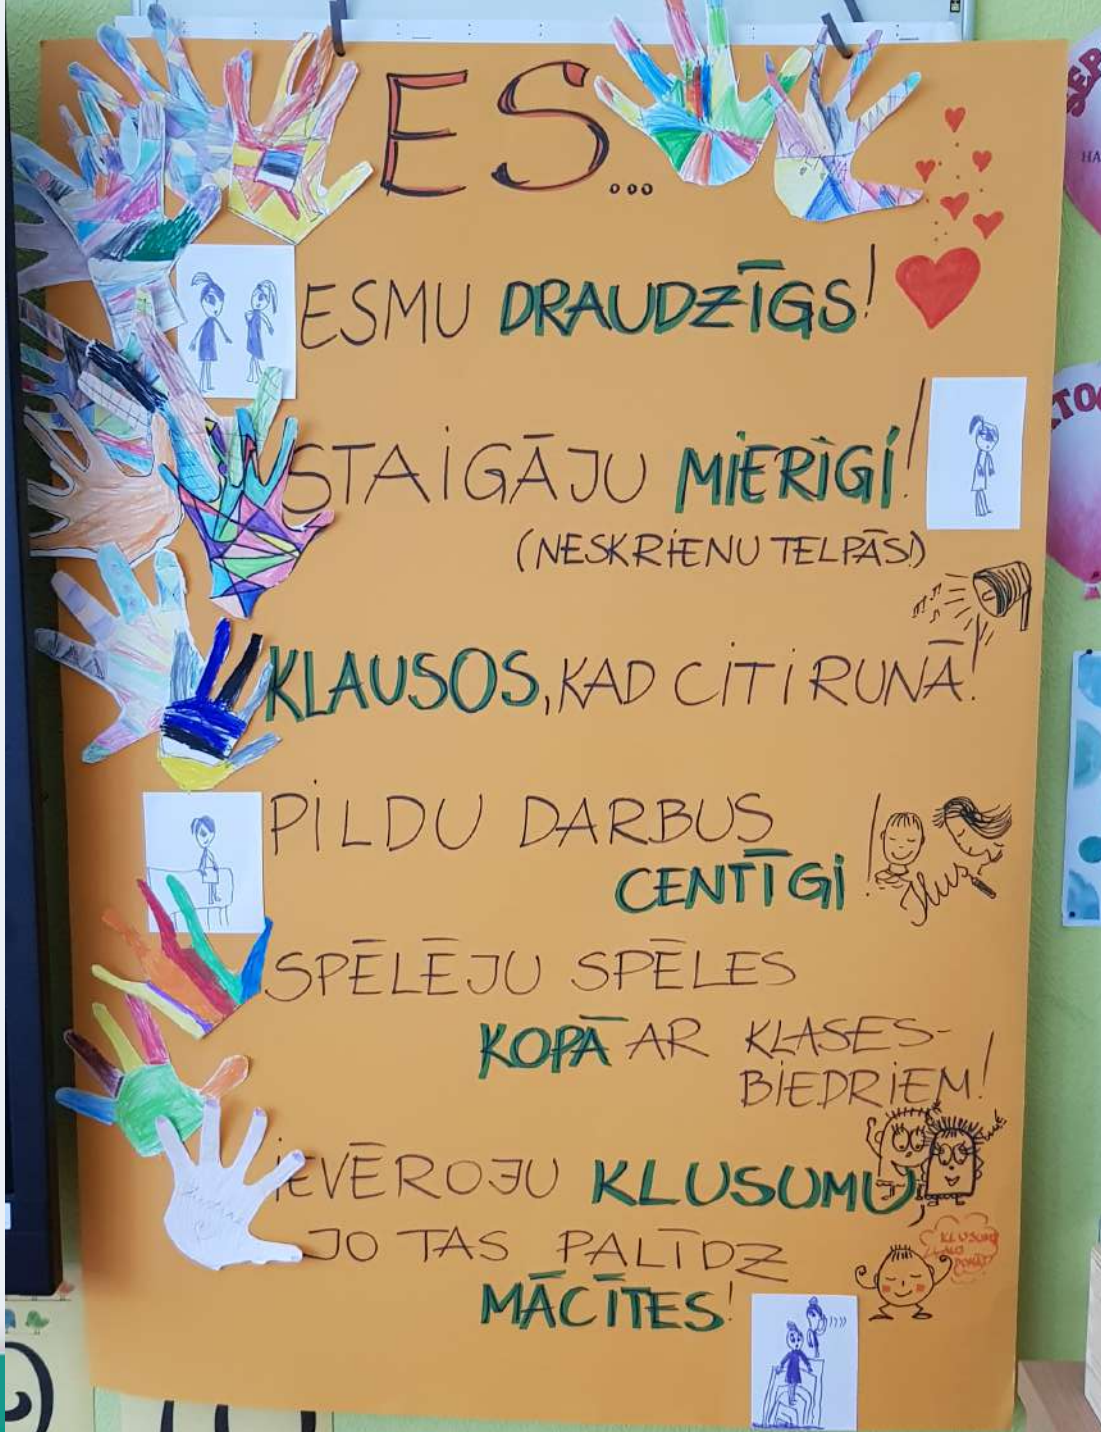 ES...
ESMU DRAUDZĪGS!
STAIGĀJU MIERĪGI!
(NESKRIENU TELPĀS!)
KLAUSOS, KAD CITI RUNĀ!
PILDU DARBUS
CENTĪGI!
SPĒLĒJU SPĒLES
KOPĀ AR KLASES-
BIEDRIEM!
IEVĒROJU KLUSUMU,
JO TAS PALĪDZ
KLUSUMS
MĀCĪTES!